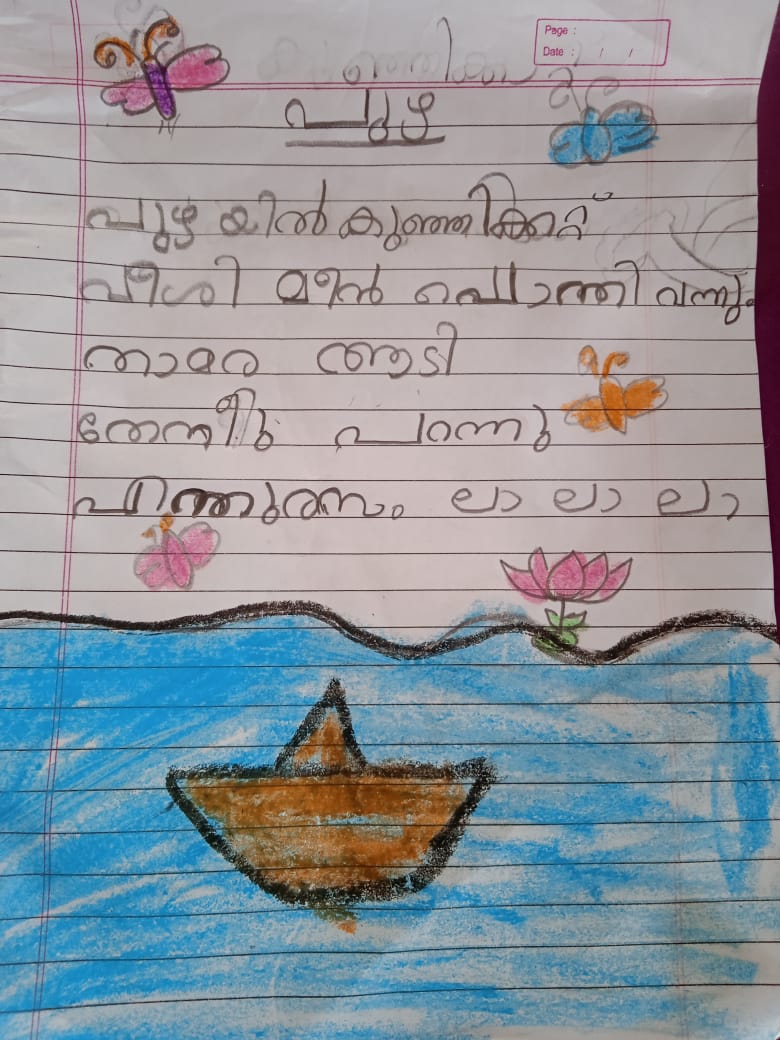 Page :
Date : / /
പുഴ
പുഴ യിൽ കുഞ്ഞിക്കാറ്റ്
വീശി മീൻ പൊന്തി വന്നു.
താമര ആടി
തേനീച്ച പറന്നു
എന്തുരസം ലാ ലാ ലാ